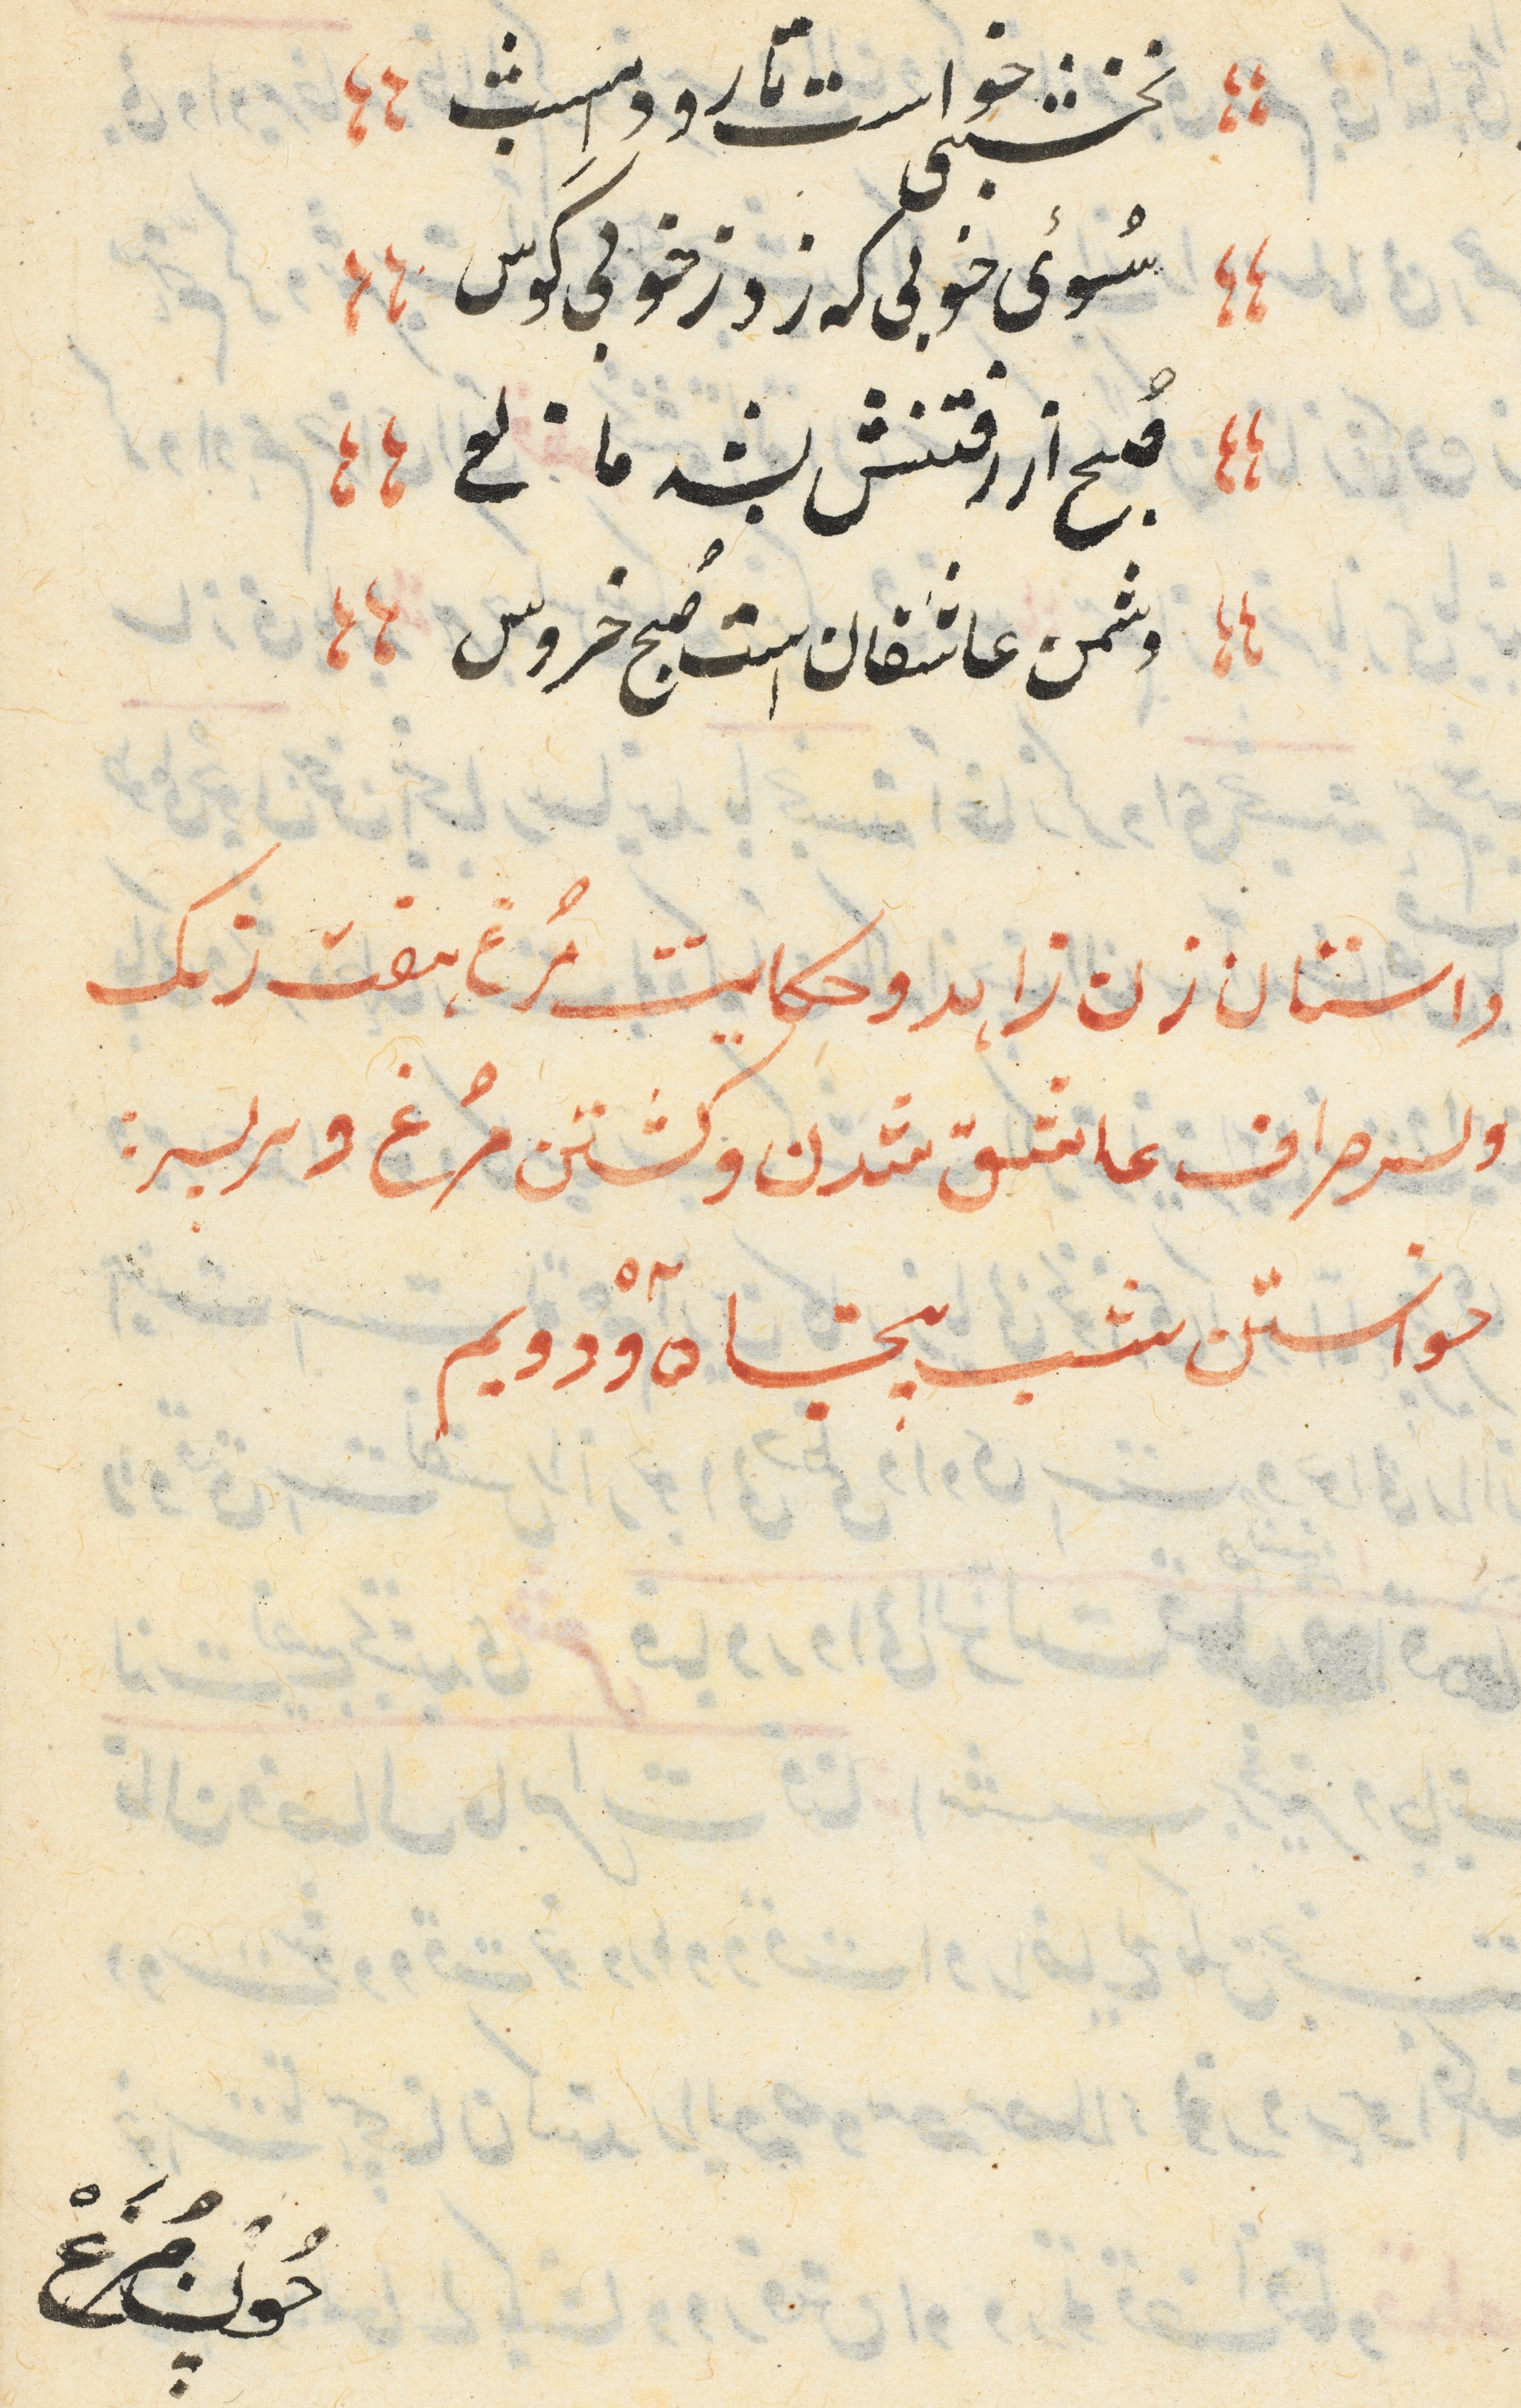 نخشبی خواست تا رود امشب
سُوئ خوبی که زد ز خوبی کوس
صُبح از رفتنش بشد مانع
دشمن عاشقان است صُبح خروس
داستان زن زاهد و حکایت مُرغ هفت رنک
و پسر صراف عاشق شدن و کشتن مُرغ و سر
خواستن شب پنجاه و دویم
چُون مُرغْ